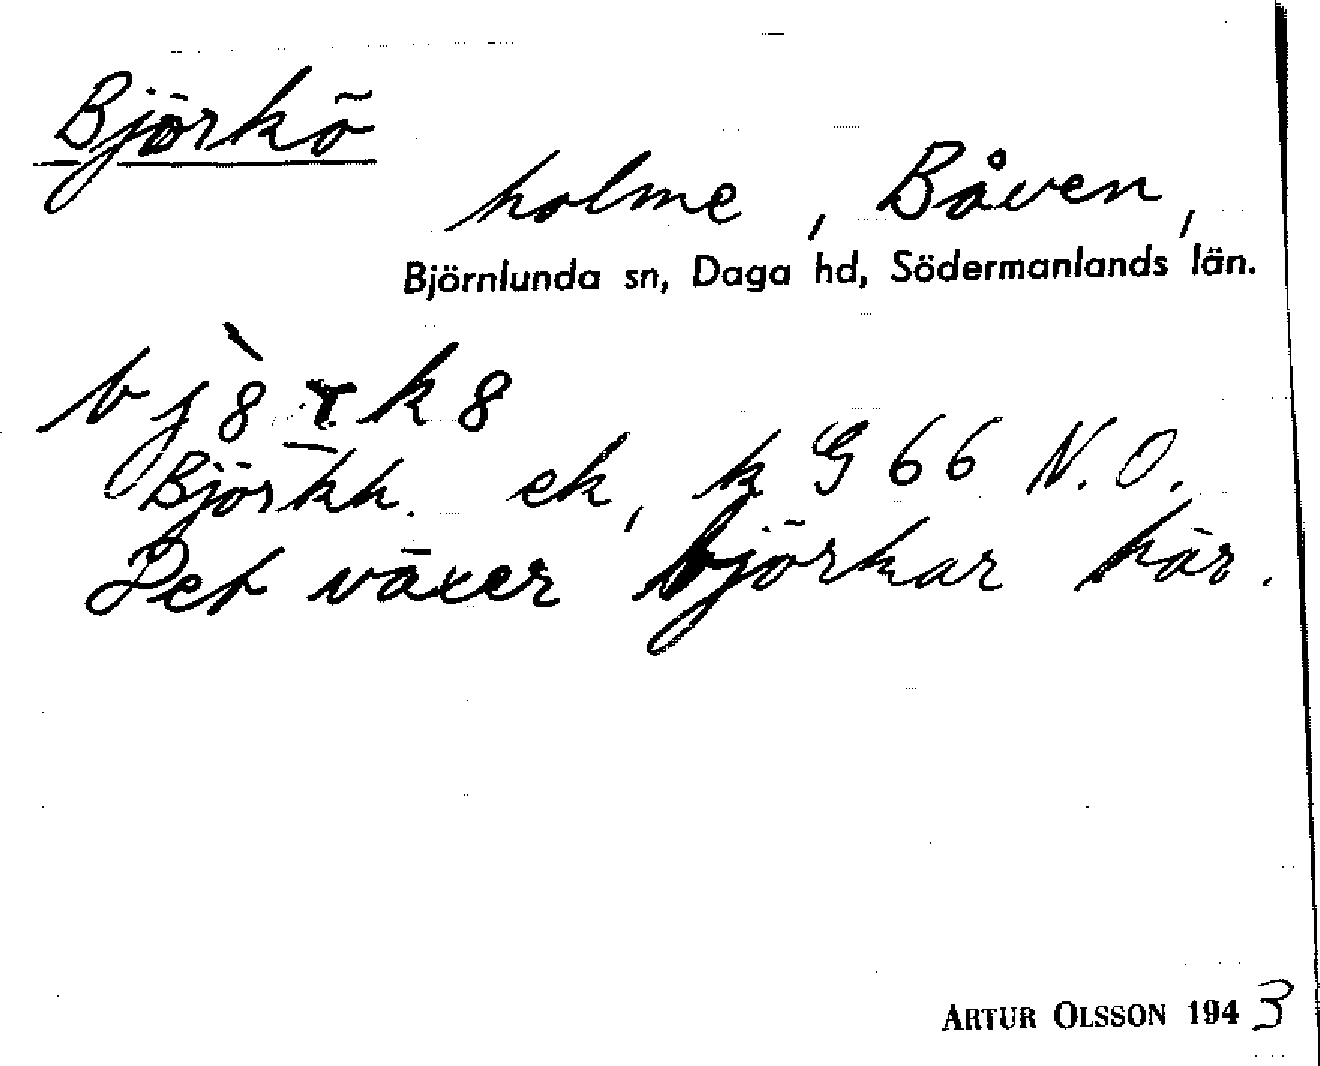 Björkö
holme, Båven,
Björnlunda sn, Daga hd, Södermanlands län.
bj8̀rk8
Björkh. ek, k G 66 N.O.
Det växer björkar här.
ARTUR OLSSON 1943